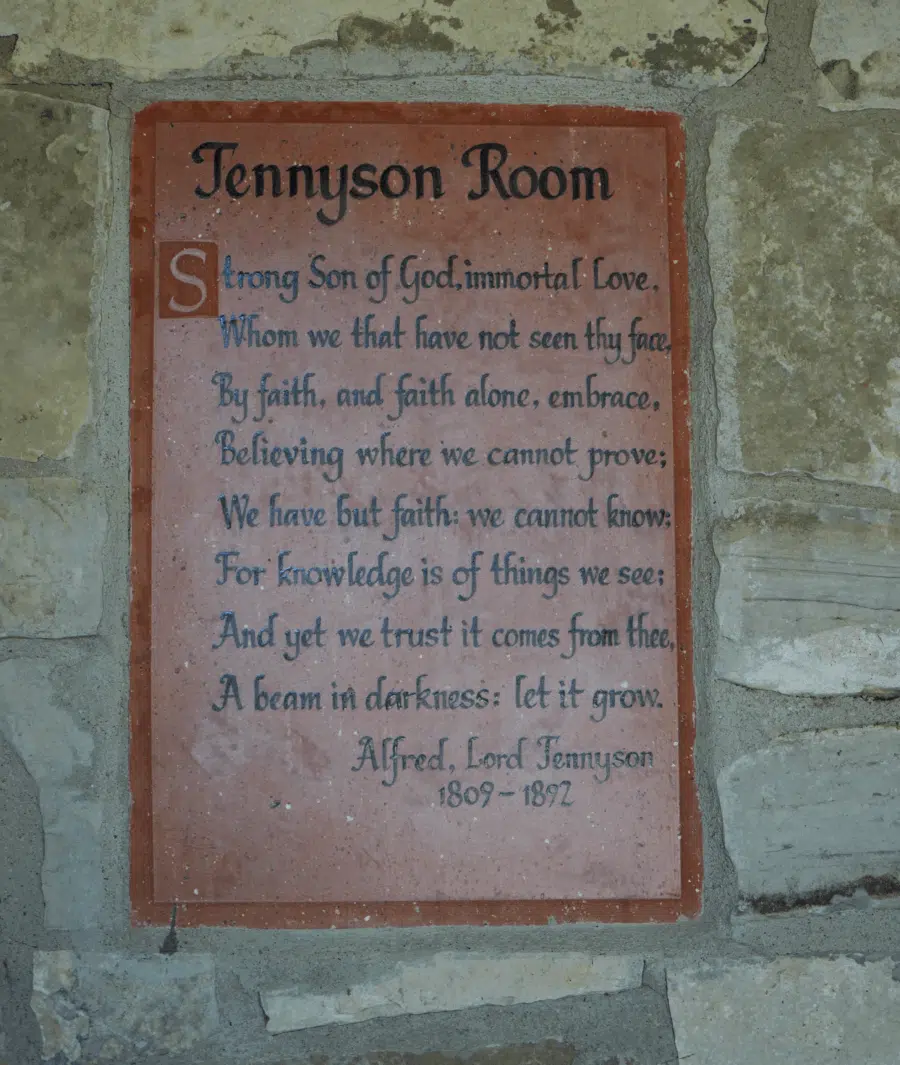 Tennyson Room
Strong Son of God, immortal Love,
Whom we that have not seen thy face,
By faith, and faith alone, embrace,
Believing where we cannot prove;
We have but faith: we cannot know;
For knowledge is of things we see;
And yet we trust it comes from thee,
A beam in darkness: let it grow.
Alfred, Lord Tennyson
1809 – 1892